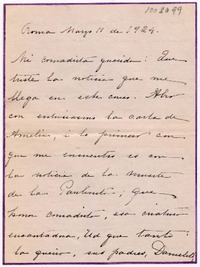 1002099
Roma Mayo 11 de 1924.
Mi comadrita querida: Que
triste la noticia que me
llega en este correo. Abro
con la carta de
Amelia, i lo primero con
que me encuentro es con
la noticia de la muerte
de la ¡ Que
pena comadrita, esa criatura
encantadora, Ud que tanto
la quería, sus padres,